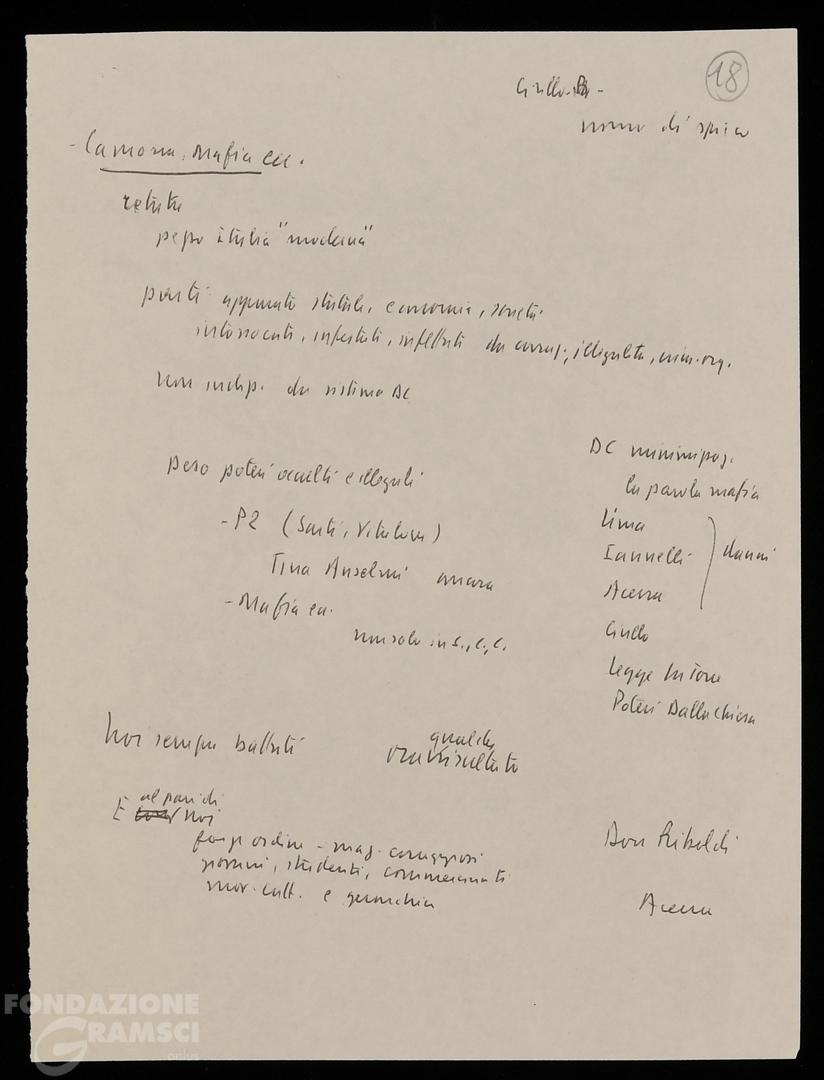 18
Cirillo
nomo di spicco
- Camorra, Mafia ecc.
peggio Italia "moderna"
parti apparato statale, economia, società
intossicati, infestati, infettati da corruz., illegalità, crim. org.
non indip. da sistema DC
peso poteri occulti e illegali
- P2 (Sarti, Vitalone)
Tina Anselmi ancora
- Mafia ecc.
non solo in S., C., C.
DC
la parola mafia
Lima
Iannelli
danni
Acerra
Cirillo
Legge La Torre
Poteri Dalla Chiesa
Noi sempre battuti
qualche
ora risultato
al pari di
E noi
forze ordine - mag. coraggiosi
giovani, studenti, commercianti
mov. cult. e gerarchia
Don Riboldi
Acerra
FONDAZIONE
GRAMSCI
onlus